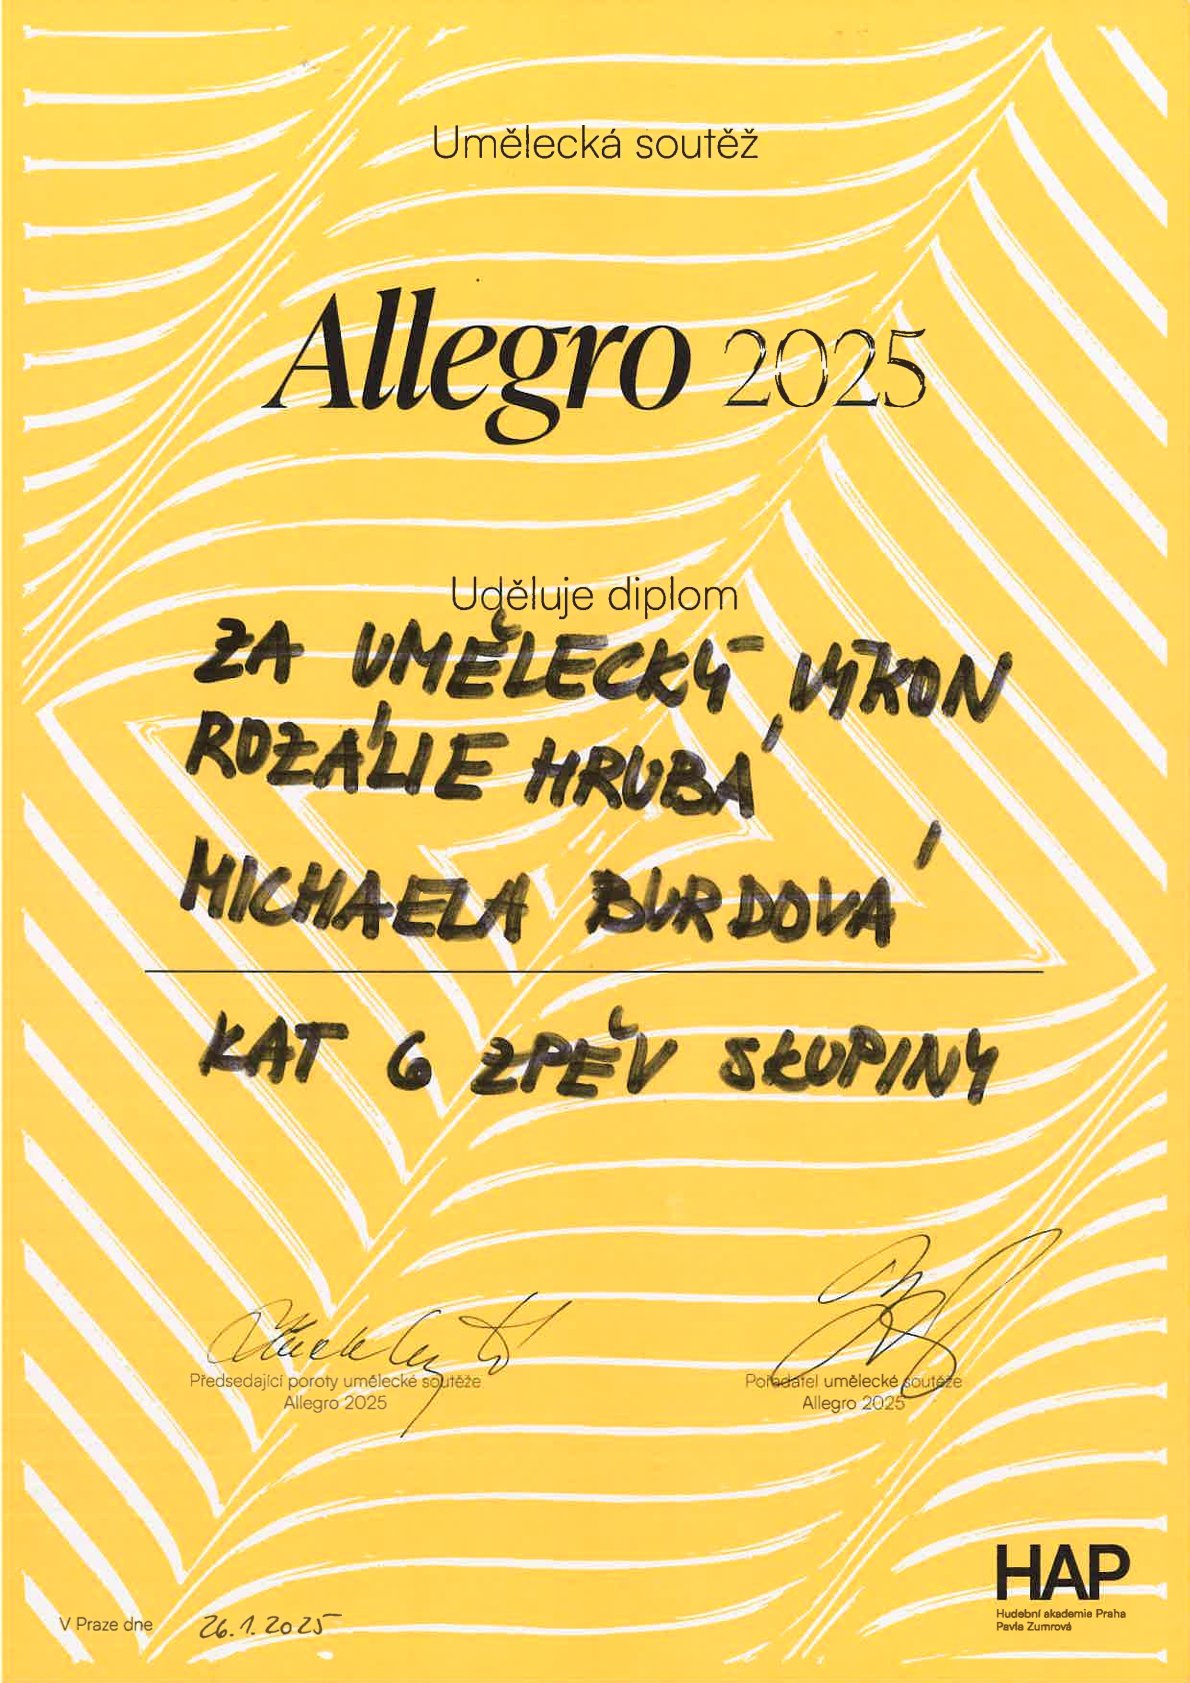 Umělecká soutěž
Allegro 2025
Uděluje diplom
ZA UMĚLECKÝ VÝKON
ROZÁLIE HRUBÁ
MICHAELA BURDOVÁ
KAT 6 ZPĚV SKUPINY
Předsedající poroty umělecké soutěže
Allegro 2025
Pořadatel umělecké soutěže
Allegro 2025
V Praze dne 26.1.2025
HAP
Hudební akademie Praha
Pavla Zumrová